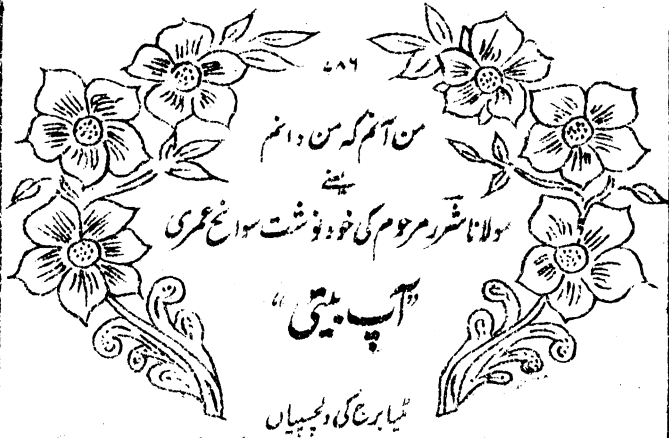 ۷۸۶
من آنم کہ من دانم
یعنے
مولانا شررؔ مرحوم کی خود نوشت سوانح عمری
”آپ بیتی“
مٹیا برج کی دلچسپیاں